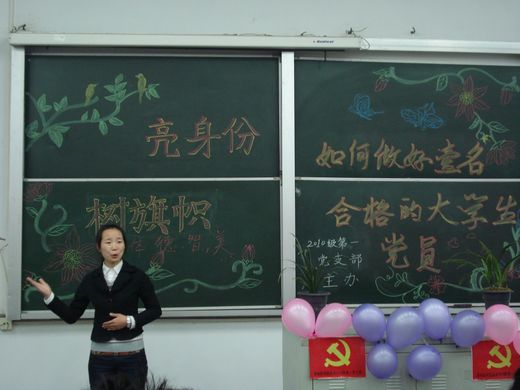 亮身份
树旗帜
如何做好壹名
合格的大学生
党员
2010级第一
党支部
主办